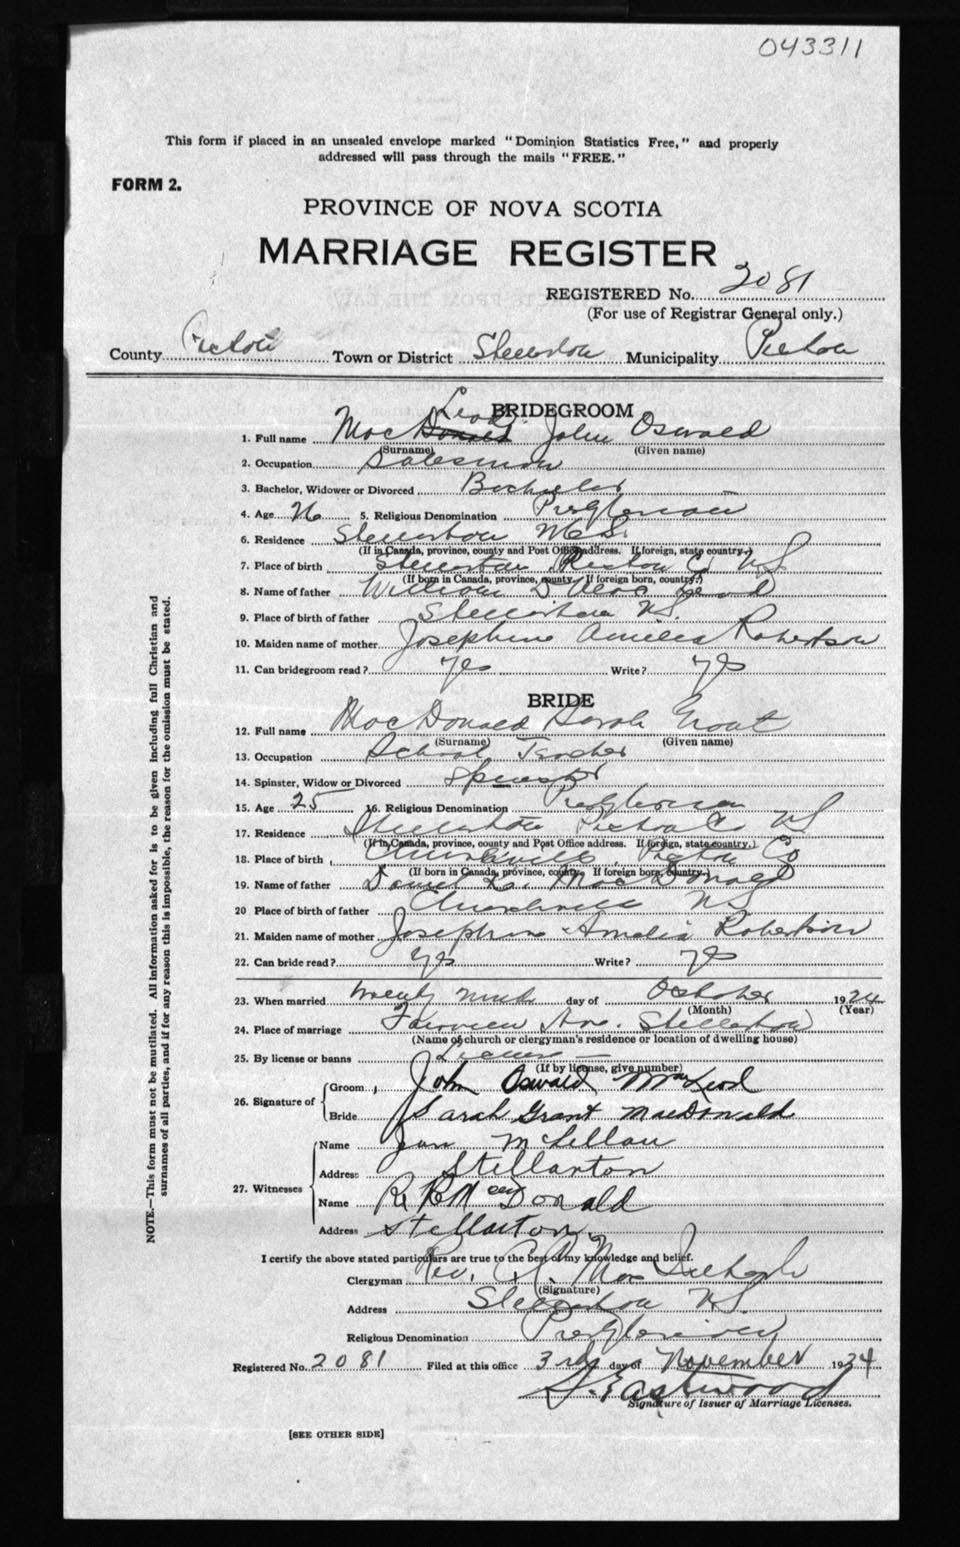 043311
This form if placed in an unsealed envelope marked "Dominion Statistics Free," and properly
addressed will pass through the mails "FREE."
FORM 2.
PROVINCE OF NOVA SCOTIA
MARRIAGE REGISTER
REGISTERED No. 2081
(For use of Registrar General only.)
County Pictou Town or District Stellarton Municipality Pictou
BRIDEGROOM
1. Full name MacLeod John Oswald
(Surname) (Given name)
2. Occupation Salesman
3. Bachelor, Widower or Divorced Bachelor
4. Age 26 5. Religious Denomination Presbyterian
6. Residence Stellarton N.S.
(If in Canada, province, county and Post Office address. If foreign, state country.)
7. Place of birth Stellarton, Pictou Co NS
(If born in Canada, province, county. If foreign born, country.)
8. Name of father William D MacLeod
9. Place of birth of father Stellarton NS.
10. Maiden name of mother Josephine Amelia Robertson
11. Can bridegroom read? yes Write? yes
BRIDE
12. Full name MacDonald Sarah Grant
(Surname) (Given name)
13. Occupation School Teacher
14. Spinster, Widow or Divorced Spinster
15. Age 25 16. Religious Denomination Presbyterian
17. Residence Stellarton Pictou Co NS
(If in Canada, province, county and Post Office address. If foreign, state country.)
18. Place of birth Churchville, Pictou Co
(If born in Canada, province, county. If foreign born, country.)
19. Name of father MacDonald
20 Place of birth of father Churchville NS
21. Maiden name of mother Josephine Amelia Robertson
22. Can bride read? yes Write? yes
23. When married twenty ninth day of October 1924
(Month) (Year)
24. Place of marriage Fairview Ave. Stellarton
(Name of church or clergyman's residence or location of dwelling house)
25. By license or banns License —
(If by license, give number)
26. Signature of Groom John Oswald MacLeod
Bride Sarah Grant MacDonald
27. Witnesses Name McLellan
Address Stellarton
Name R MacDonald
Address Stellarton.
I certify the above stated particulars are true to the best of my knowledge and belief.
Clergyman Rev. Mac
(Signature)
Address Stellarton NS.
Religious Denomination Presbyterian
Registered No. 2081 Filed at this office 3rd day of November 1924
Eastwood
Signature of Issuer of Marriage Licenses.
[SEE OTHER SIDE]
NOTE.—This form must not be mutilated. All information asked for is to be given including full Christian and
surnames of all parties, and if for any reason this is impossible, the reason for the omission must be stated.